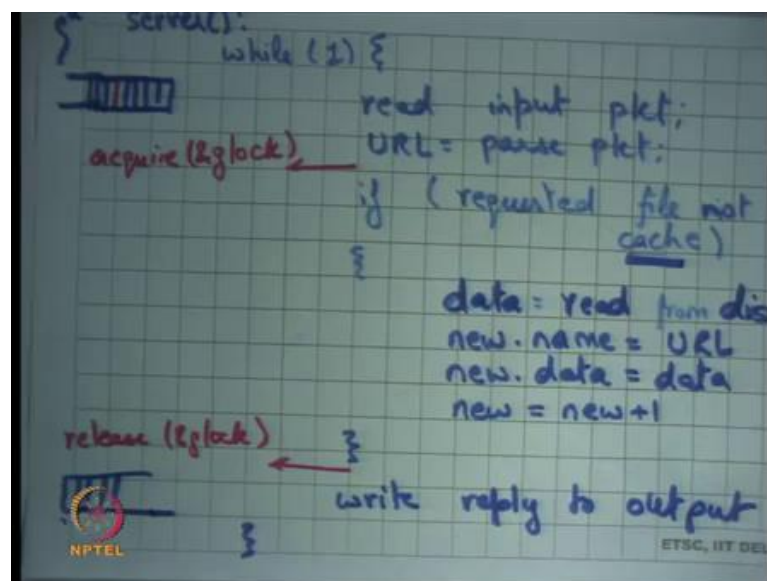 server():
while (1) {
read input pkt;
acquire (&glock)
URL = parse pkt;
if ( requested file not
cache )
{
data = read from dis
new.name = URL
new.data = data
new = new+1
release (&glock)
}
write reply to output
}
NPTEL
ETSC, IIT DEL